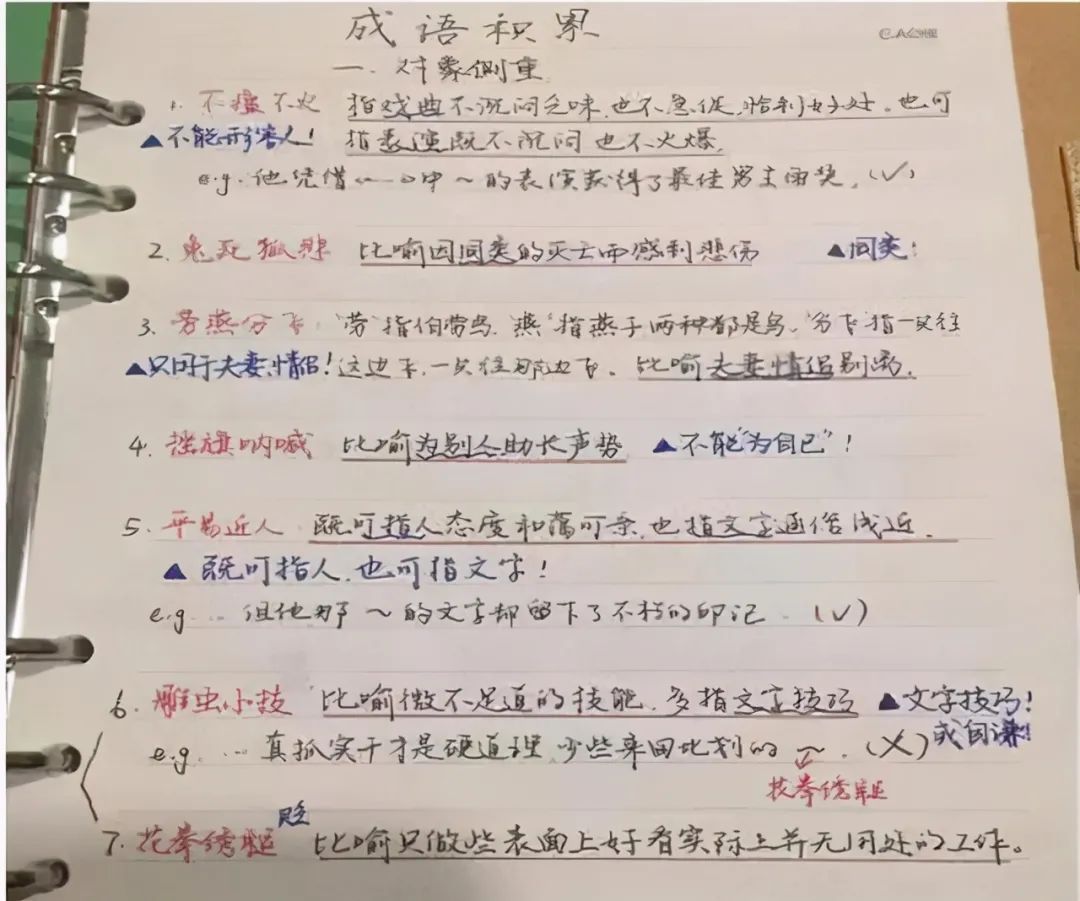 成语积累
一、对象侧重
1. 不瘟不火 指戏曲不沉闷乏味,也不急促,恰到好处。也可
▲不能形容人! 指表演既不沉闷也不火爆。
e.g. 他凭借《……》中~的表演获得了最佳男主角奖。(✓)
2. 兔死狐悲 比喻因同类的灭亡而感到悲伤 ▲同类!
3. 劳燕分飞 "劳"指伯劳鸟,"燕"指燕子两种都是鸟,"分飞"指一只往
▲只用于夫妻,情侣!这边飞,一只往那边飞。比喻夫妻,情侣别离。
4. 摇旗呐喊 比喻为别人助长声势 ▲不能"为自己"!
5. 平易近人 既可指人态度和蔼可亲,也指文字通俗浅近。
▲ 既可指人,也可指文字!
e.g. … 但他那~的文字却留下了不朽的印记。(✓)
6. 雕虫小技 比喻微不足道的技能,多指文字技巧 ▲文字技巧!
或自谦!
e.g. … 真抓实干才是硬道理,少些来回比划的~。(✗)
花拳绣腿
贬
7. 花拳绣腿 比喻只做些表面上好看实际上并无用处的工作。